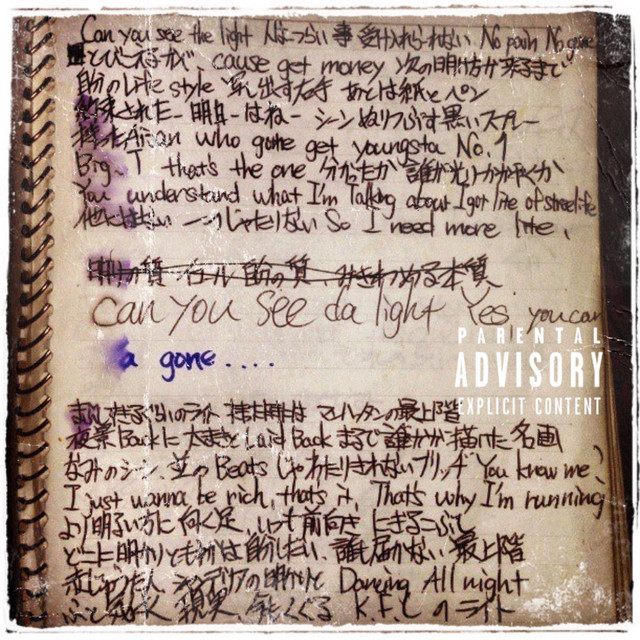 Can you see the light 人はつらい事 受け入れられない No pain No gone
とびこえるカベ cause get money 次の明け方が来るまで
自分のLife style 写し出す右手 あとは紙とペン
約束された一明日一はねー シーンぬりつぶす黒いスプレー
Asian who gone get youngsta No.1
Big. T that's the one 分かったか 誰が光りかがやくか
You understand what I'm Talking about I got lite of streelife
他にはない 一つじゃたりない So I need more lite,
の質 の質 みきわめる本質
Can you see da light Yes, you can
a gone....
PARENTAL
ADVISORY
EXPLICIT CONTENT
のライト マンハッタンの最上階
夜景Backに 大きなと Laid Back まるで誰かが描いた名画
なみのシーン, 並の Beats じゃわたりきれないブリッヂ You know me?
I just wanna be rich, thats it, That's why I'm running
より明るい方に向く足, いつも前向き にぎるこぶし
どこに明かりともすかは自分しだい, 誰も届かない 最上階
シャンデリアの明かりと Dancing All night
ふと 現実, K.F.C のライト